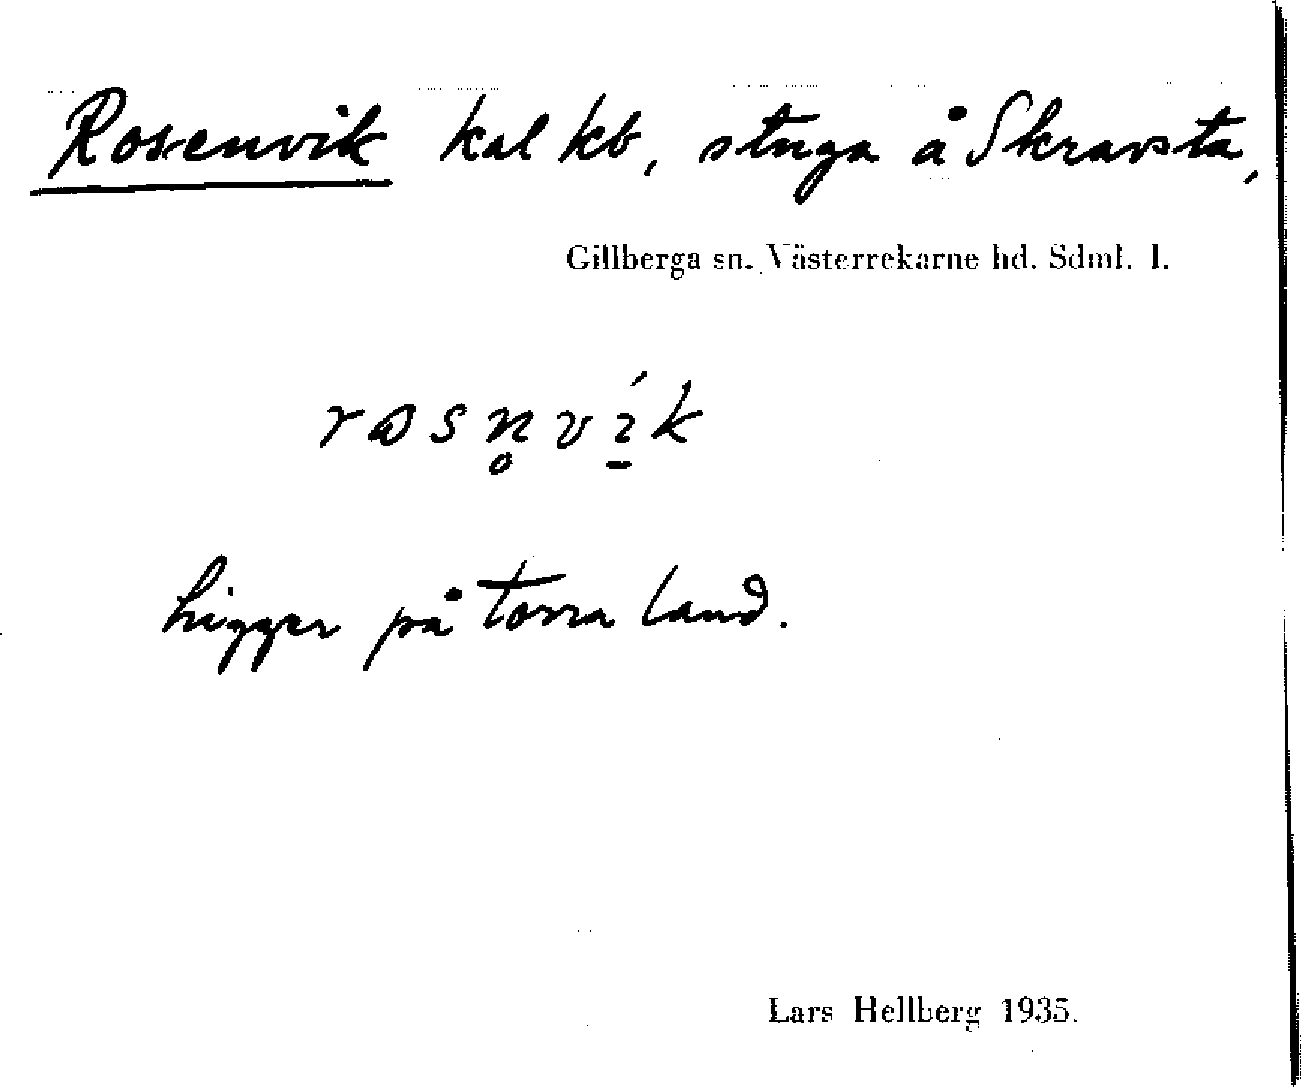 Rosenvik kal kb, stuga å Skravsta,
Gillberga sn. Västerrekarne hd. Sdml. l.
rɷsn̥vı̱́k
Ligger på torra land.
Lars Hellberg 1935.